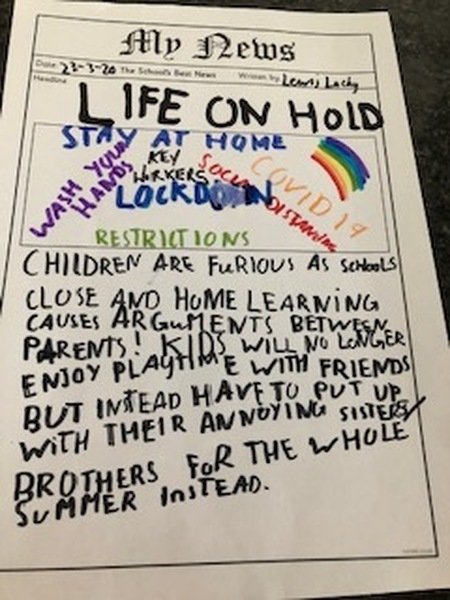 My News
Date 23-3-20 The School's Best News Written by Lewis Lacky
Headline
LIFE ON HOLD
STAY AT HOME
WASH YOUR HANDS
KEY WORKERS
SOCIAL DISTANCING
COVID 19
LOCKDOWN
RESTRICTIONS
CHILDREN ARE FURIOUS AS SCHOOLS
CLOSE AND HOME LEARNING
CAUSES ARGUMENTS BETWEEN
PARENTS! KIDS WILL NO LONGER
ENJOY PLAYTIME WITH FRIENDS
BUT INTEAD HAVE TO PUT UP
WITH THEIR ANNOYING SISTERS/
BROTHERS FOR THE WHOLE
SUMMER INSTEAD.